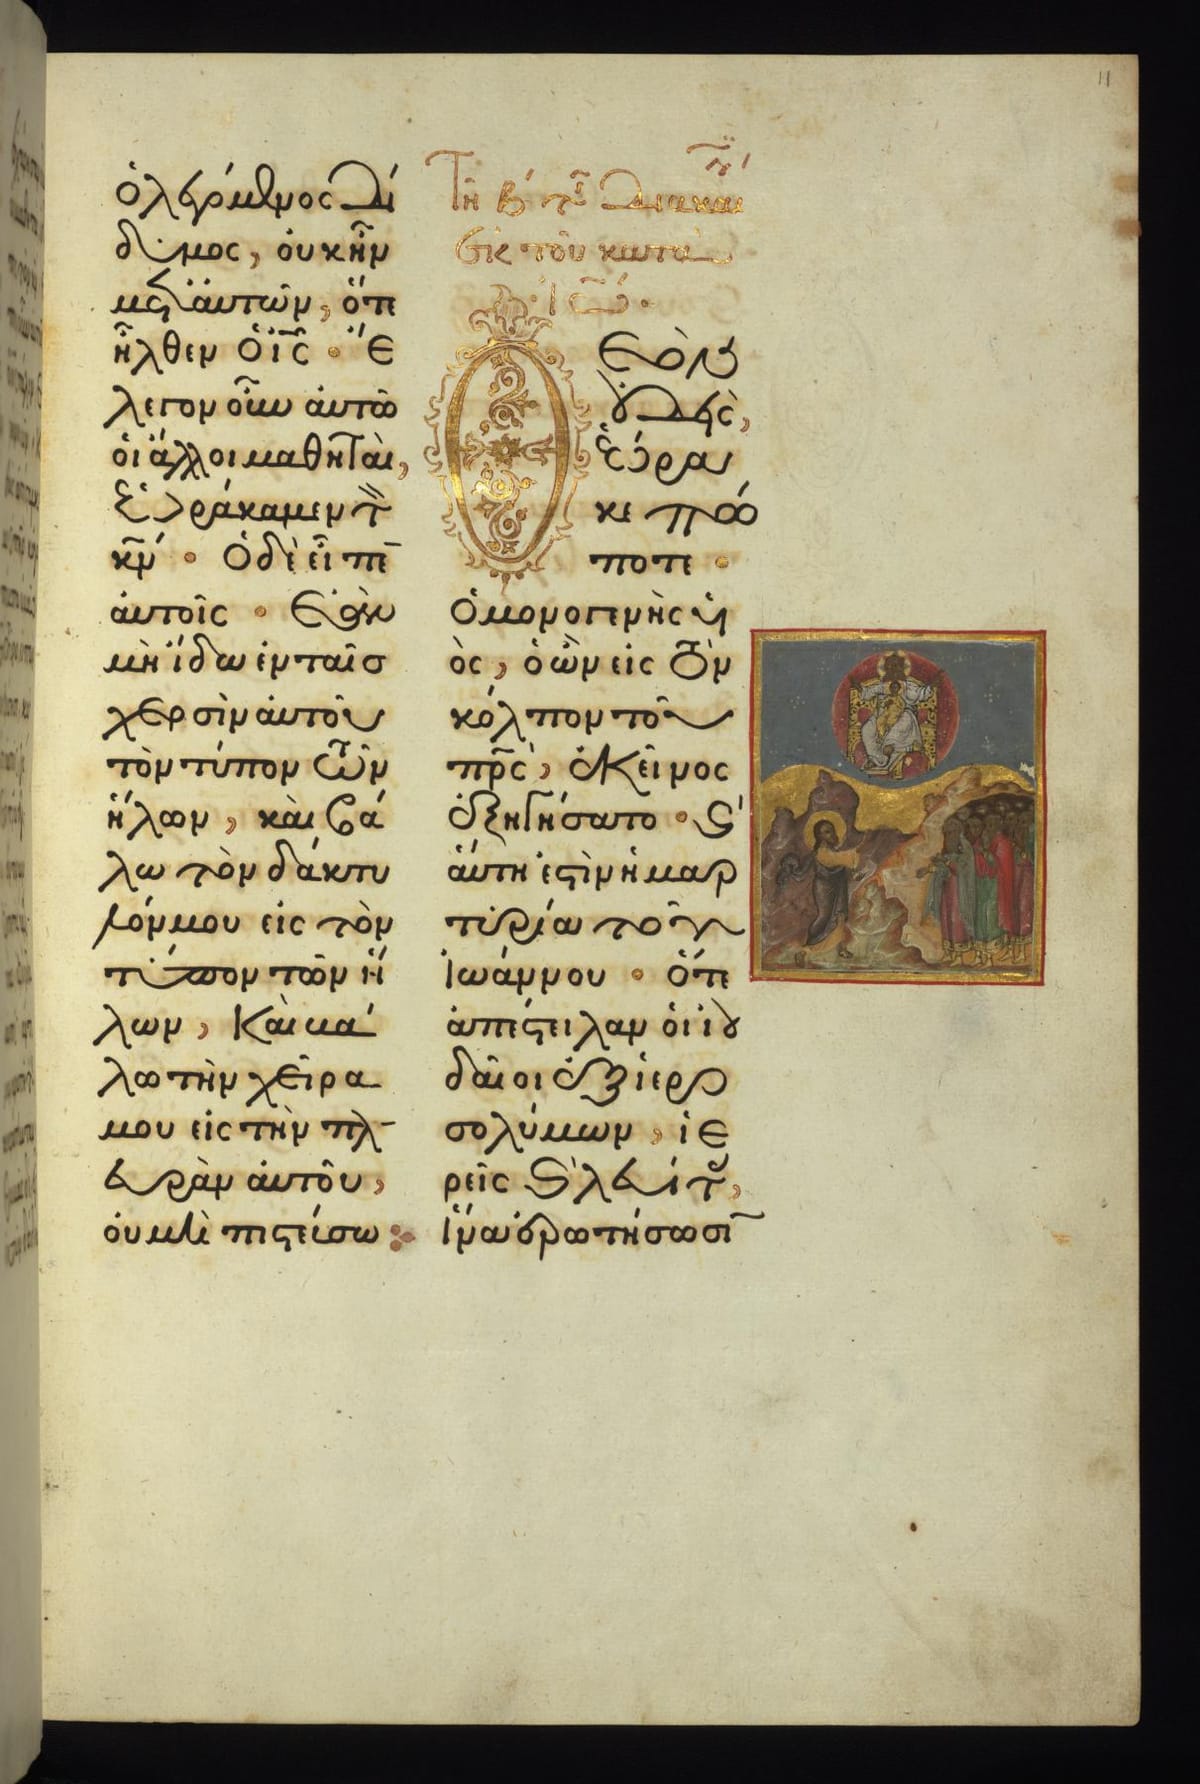 ὁ λεγόμενος Δί
δυμος, οὐκ ἦν
μετ' αὐτῶν, ὅτε
ἦλθεν ὁ ἰς. Ἔ
λεγον οὖν αὐτῶ
οἱ ἄλλοι μαθηταὶ,
Ἑωράκαμεν τ
κν. Ὁ δὲ εἶπε
αὐτοῖς. Ἐὰν
μὴ ἴδω ἐν ταῖσ
χερσὶν αὐτοῦ
τὸν τύπον τῶν
ἥλων, καὶ βά
λω τὸν δάκτυ
λόν μου εἰς τὸν
τύπον τῶν ἥ
λων, Καὶ βά
λω τὴν χεῖρα
μου εἰς τὴν πλ
ευρὰν αὐτοῦ,
οὐ μὴ πιστεύσω
Τῆ β' τῆς διακαι
ἐκ τοῦ κατὰ
Ἰω.
Θεὸν
οὐδεὶς,
ἑώρα
κε πώ
ποτε.
Ὁ μονογενὴς υἱ
ὸς, ὁ ὢν εἰς τὸν
κόλπον τοῦ
πρς, ἐκεῖνος
ἐξηγήσατο. Κ
αὕτη ἐστὶν ἡ μαρ
τυρία τοῦ
Ἰωάννου. Ὅτε
ἀπέστειλαν οἱ ἰου
δαῖοι ἐξ ἱερο
σολύμων, ἱε
ρεῖς κ λευίτ,
ἵνα ἐρωτήσωσι
11